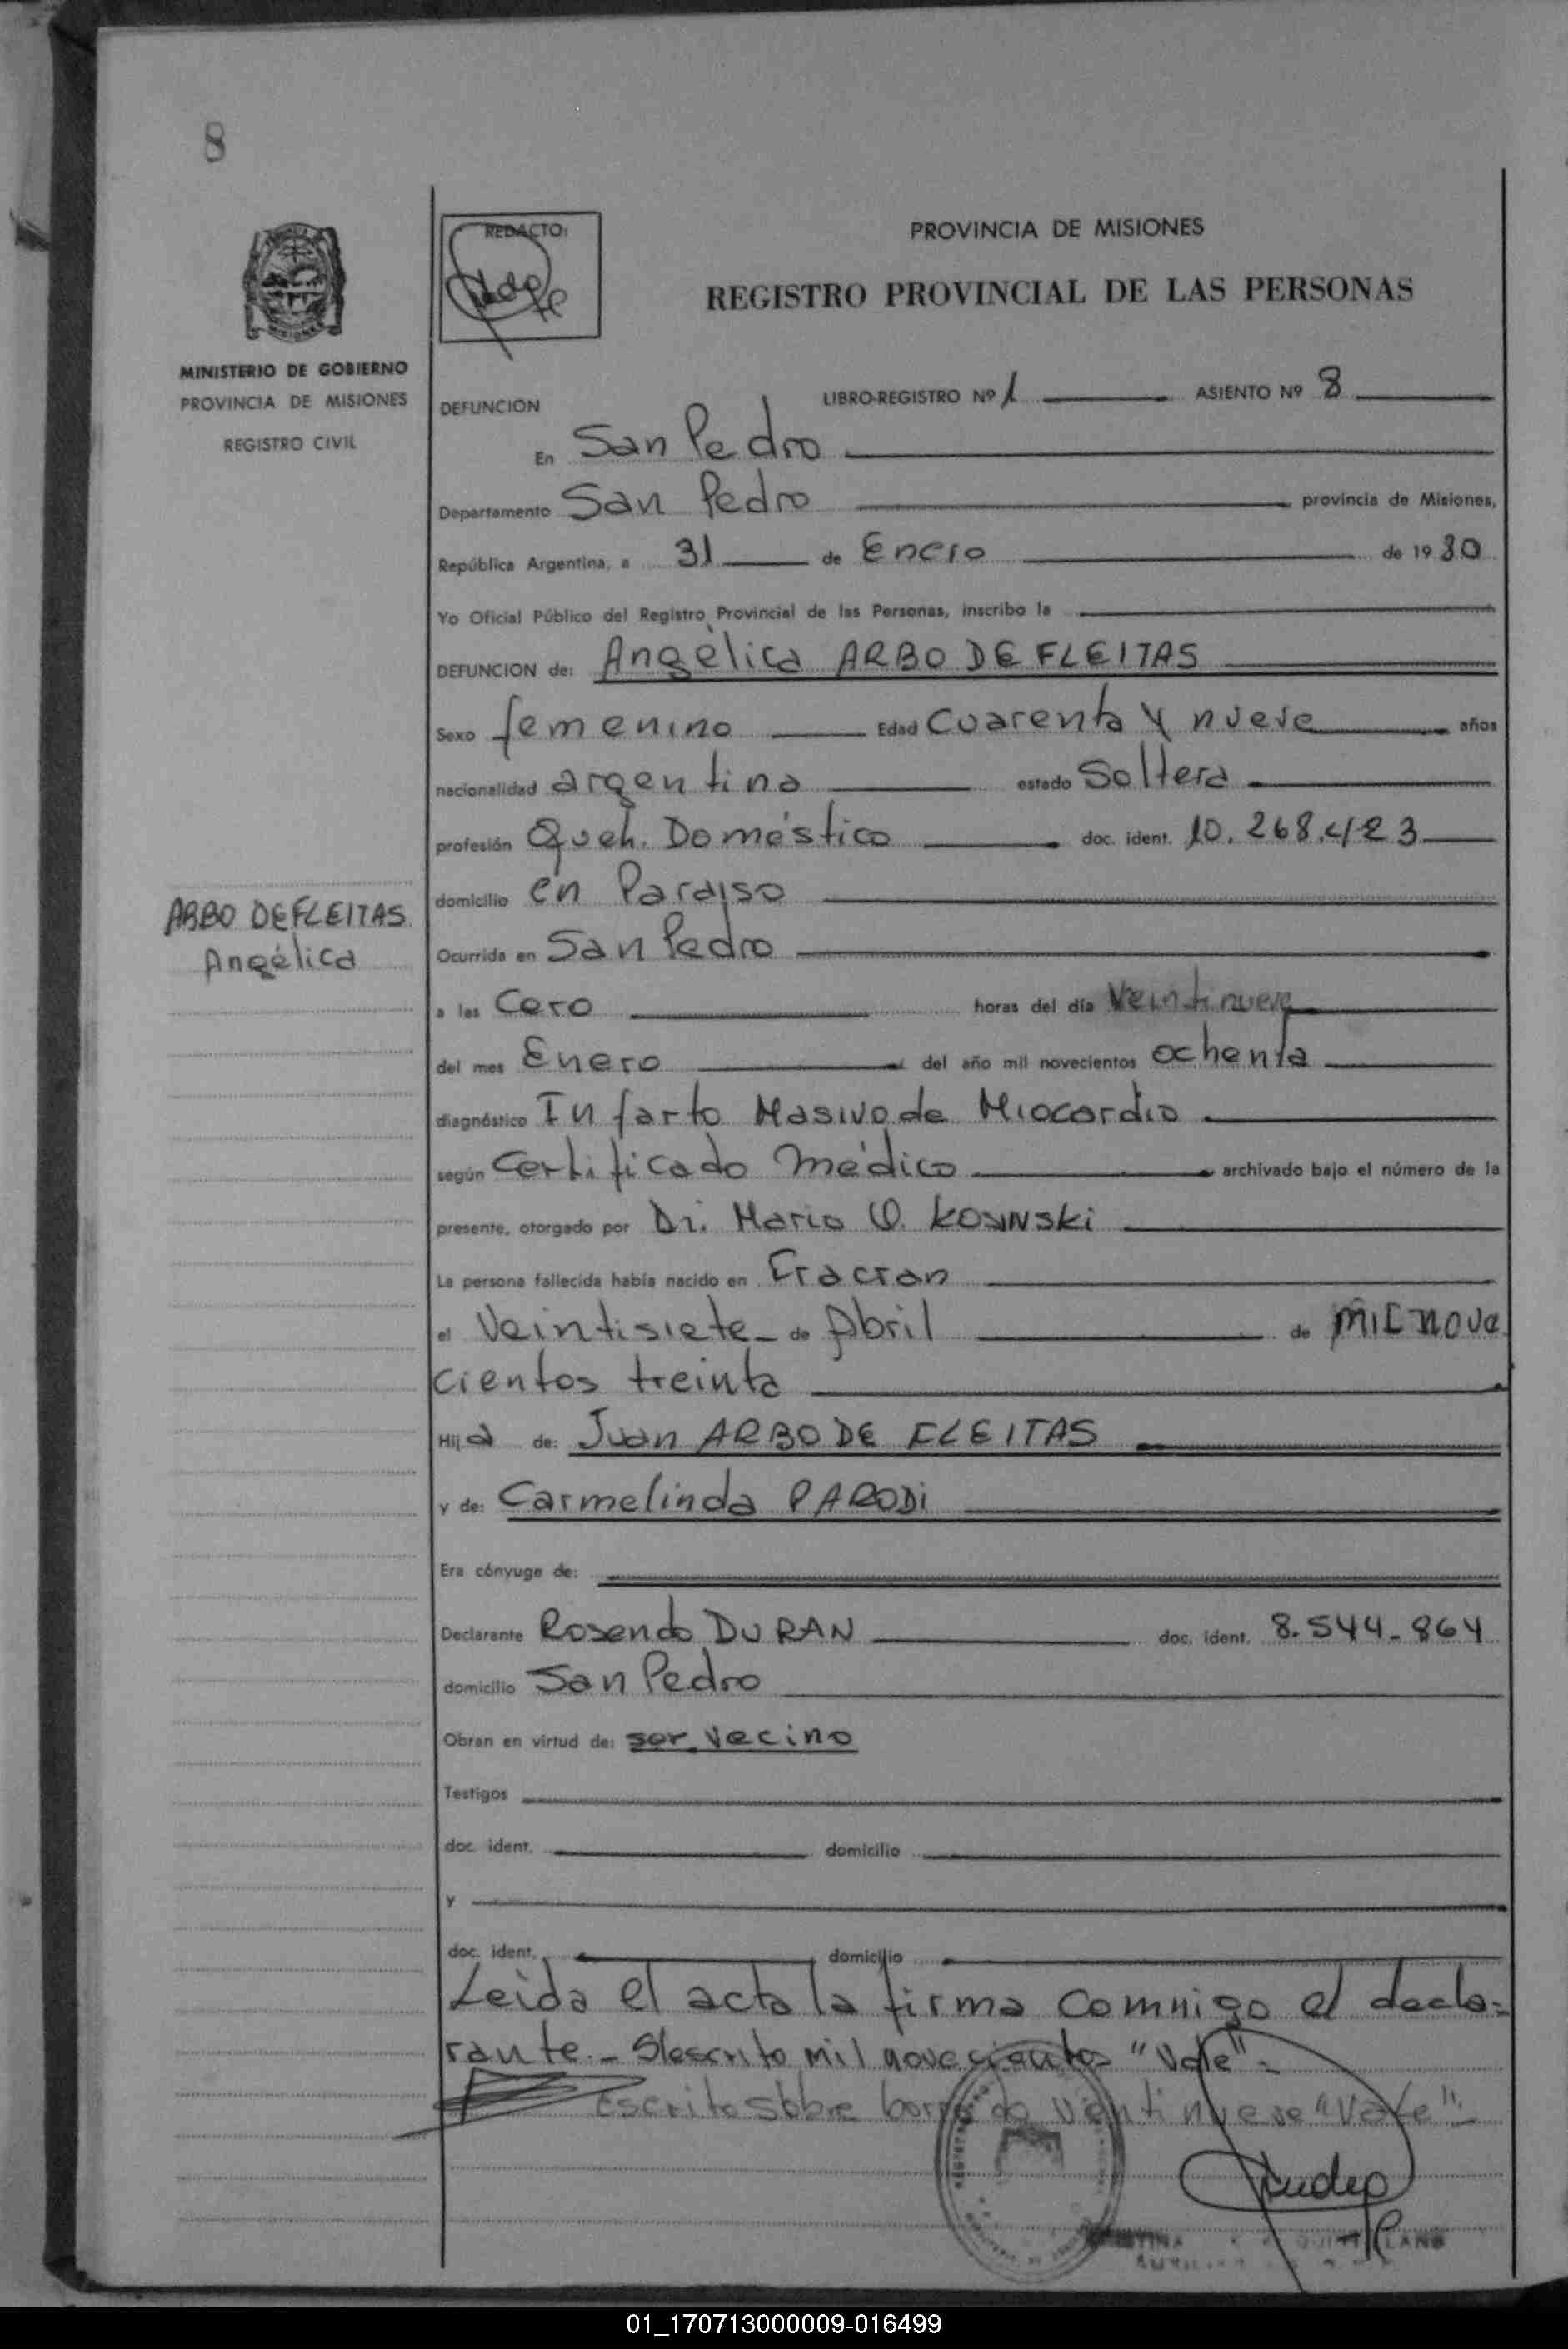 8
REDACTO:
PROVINCIA DE MISIONES
REGISTRO PROVINCIAL DE LAS PERSONAS
MINISTERIO DE GOBIERNO
PROVINCIA DE MISIONES
REGISTRO CIVIL
DEFUNCION LIBRO-REGISTRO Nº 1 ASIENTO Nº 8
En San Pedro
Departamento San Pedro provincia de Misiones,
República Argentina, a 31 de Enero de 19 80
Yo Oficial Público del Registro Provincial de las Personas, inscribo la
DEFUNCION de: Angélica ARBO DE FLEITAS
Sexo femenino Edad Cuarenta y nueve años
nacionalidad argentina estado Soltera
profesión Queh. Doméstico doc. ident. 10.268.423
domicilio en Paraiso
ARBO DE FLEITAS
Angélica
Ocurrida en San Pedro
a las Cero horas del día Veintinueve
del mes Enero del año mil novecientos ochenta
diagnóstico Infarto Masivo de Miocardio
según Certificado médico archivado bajo el número de la
presente, otorgado por Dr. Mario O. KOSINSKI
La persona fallecida había nacido en Fracran
el Veintisiete de Abril de MIL nove
cientos treinta
Hij a de: Juan ARBO DE FLEITAS
y de: Carmelinda PARODI
Era cónyuge de:
Declarante Rosendo DURAN doc. ident. 8.544-864
domicilio San Pedro
Obran en virtud de: ser vecino
Testigos
doc. ident. domicilio
y
doc. ident. domicilio
Leida el acta la firma comnigo el decla-
rante.- S/escrito mil novecientos "Vale".-
Escrito sobre borrado Veintinueve "Vale".-
01_170713000009-016499